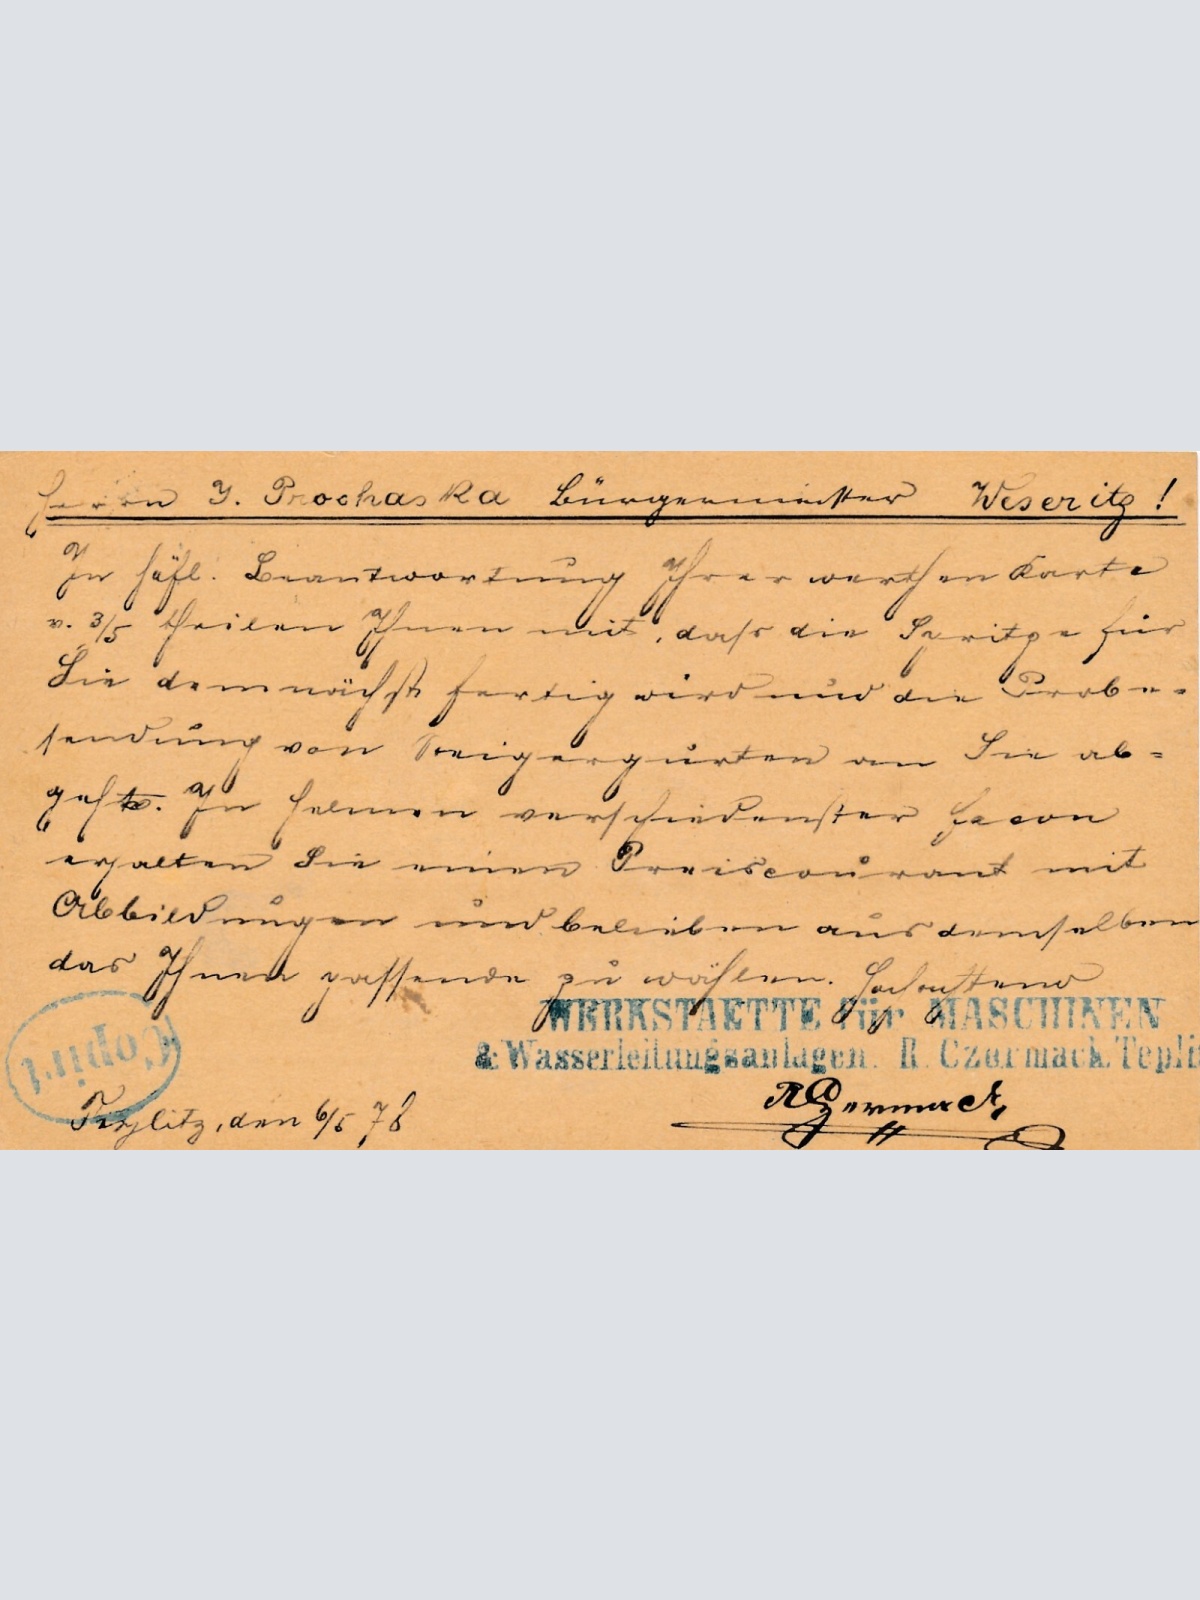 Herrn J. Prochaska Bürgermeister Weseritz!
In höfl. Beantwortung Ihrer werthen Karte
v. 3/5 theilen Ihnen mit, dass die Spritze für
Sie demnächst fertig wird und die Probe-
sendung von Steigergurten an Sie ab-
geht. In Helmen verschiedenster Facon
erhalten Sie einen Preiscourant mit
Abbildungen und belieben aus demselben
das Ihnen passende zu wählen. Hochachtend
WERKSTAETTE für MASCHINEN
& Wasserleitungsanlagen. R. Czermack, Teplitz
Copirt
RCzermack
Teplitz, den 6/5 78